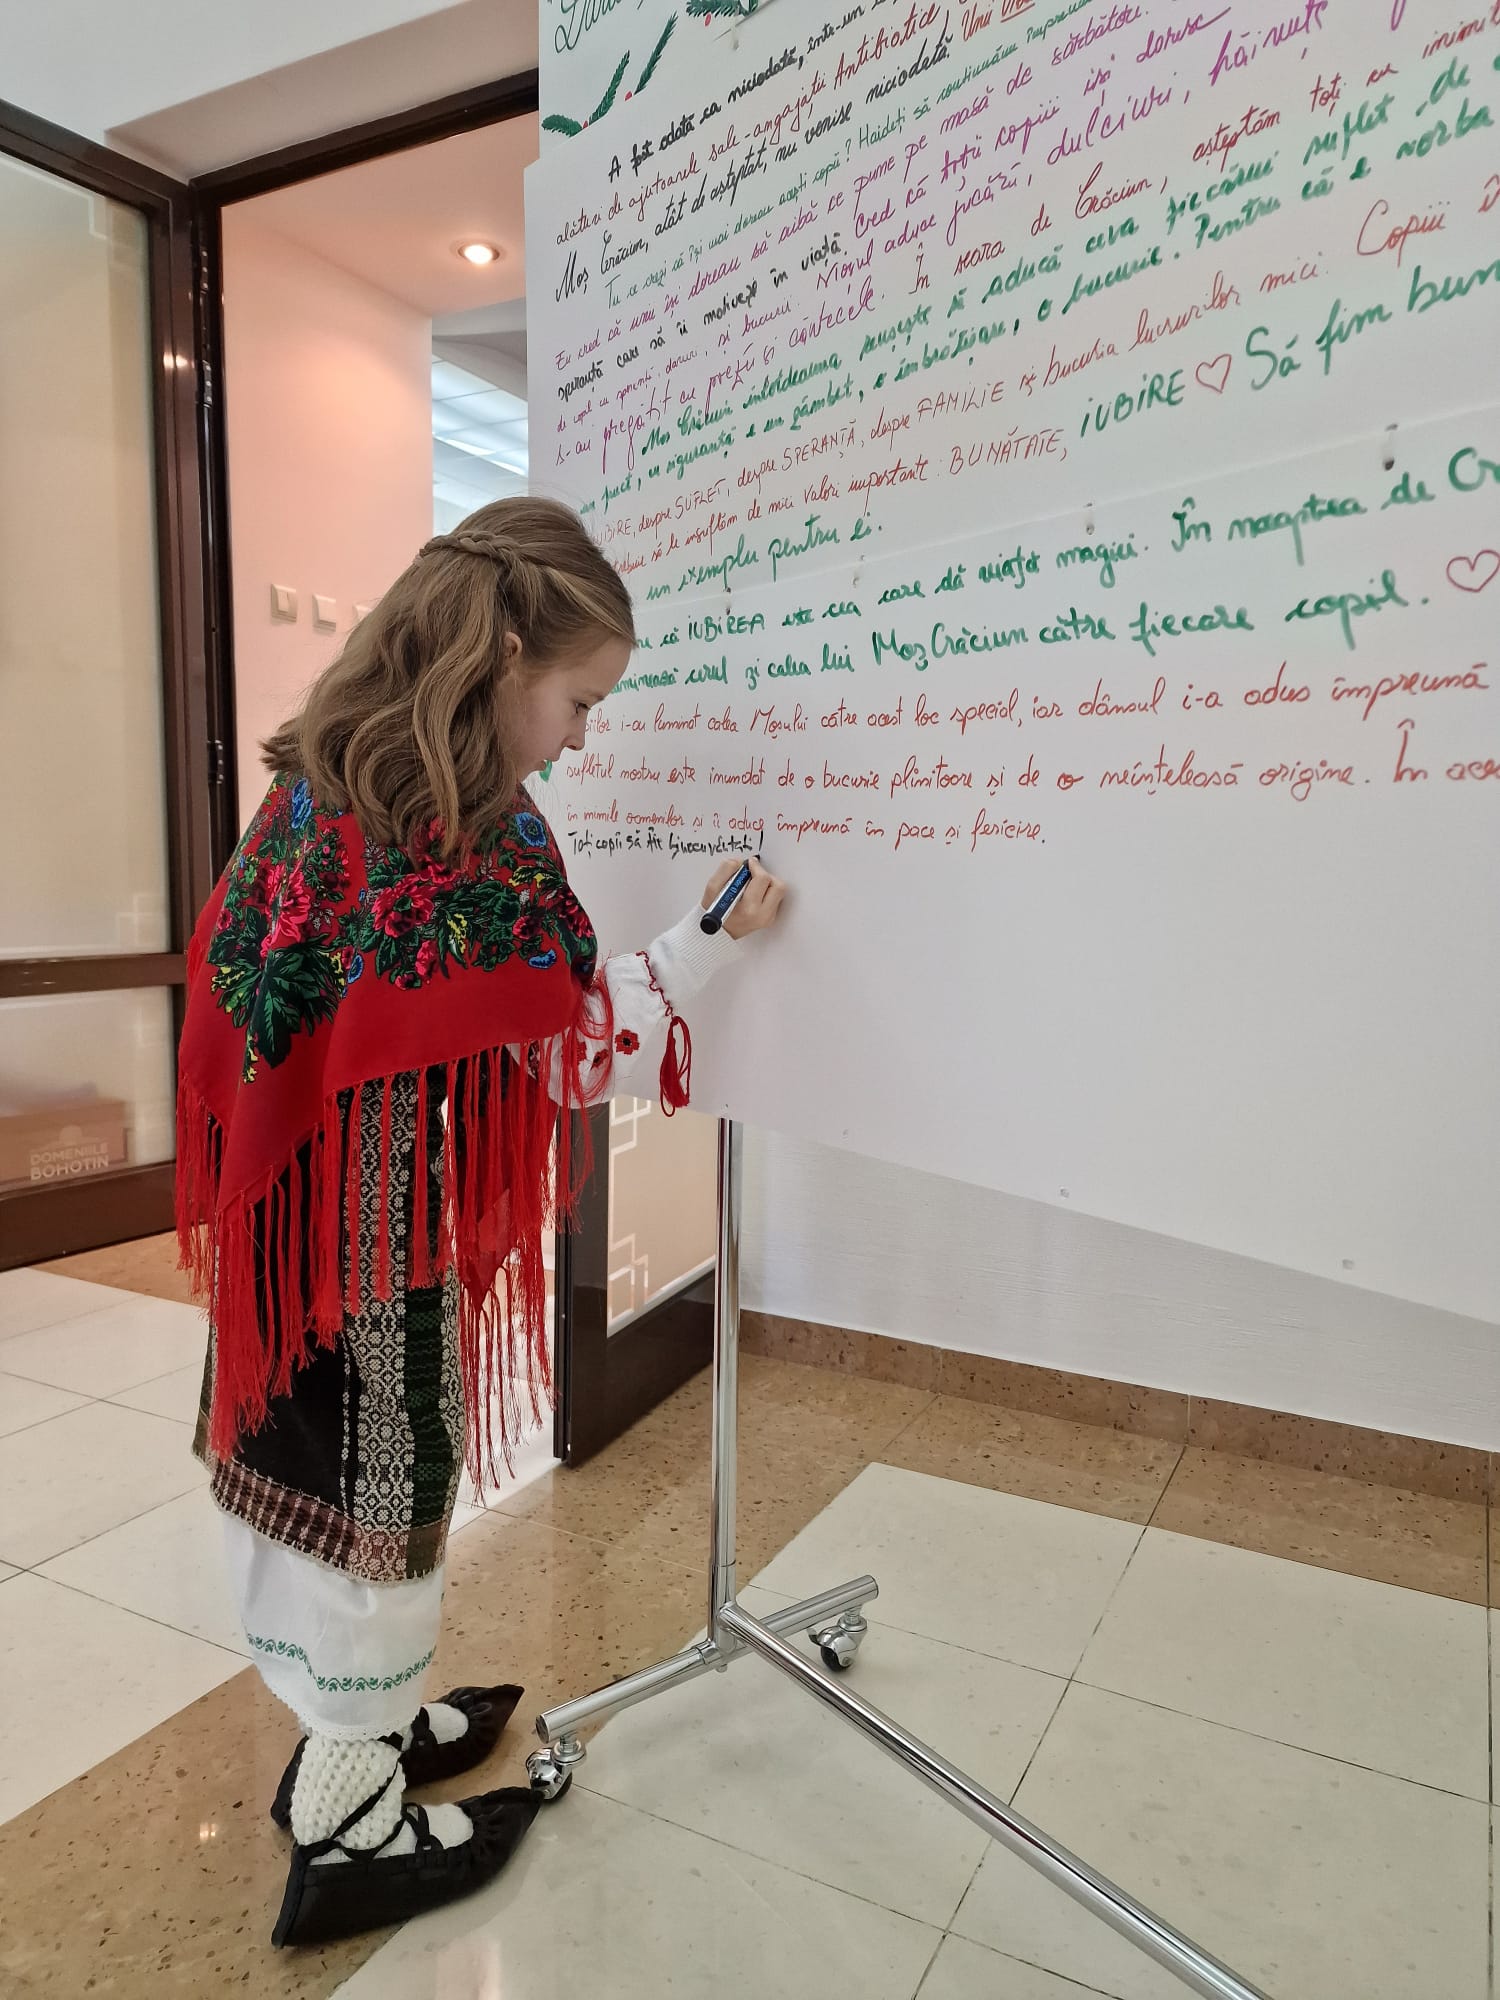 A fost odată ca niciodată, într-un
alături de ajutoarele sale - angajații Antibiotice
Moș Crăciun, atât de așteptat, nu venise niciodată. Unii
Tu ce crezi că își mai doreau acești copii? Haideți să continuăm împreună
Eu cred că unii își doreau să aibă ce pune pe masă de sărbători.
speranță care să îi motiveze în viață. Cred că toții copiii își doresc
de copil cu speranță, daruri, și bucurii. Moșul aduce jucării, dulciuri, hăinuțe
s-au pregătit cu poezii și cântecele. În seara de Crăciun, așteptăm toți cu
Moș Crăciun întotdeauna reușește să aducă ceva fiecărui suflet de
cu siguranță e un zâmbet, o îmbrățișare, o bucurie. Pentru că e vorba
IUBIRE, despre SUFLET, despre SPERANȚĂ, despre FAMILIE și bucuria lucrurilor mici. Copiii
trebuie să le insuflăm de mici valori importante: BUNĂTATE, IUBIRE ♡ Să fim
un exemplu pentru ei.
că IUBIREA este cea care dă viața magiei. În noaptea de
cerul și calea lui Moș Crăciun către fiecare copil. ♡
i-au luminat calea Moșului către acest loc special, iar dânsul i-a adus împreună
sufletul nostru este inundat de o bucurie plinitoare și de o neînțeleasă origine. În
în inimile oamenilor și îi aduce împreună în pace și fericire.
Toți copiii să fie binecuvântați!
DOMENIILE
BOHOTIN